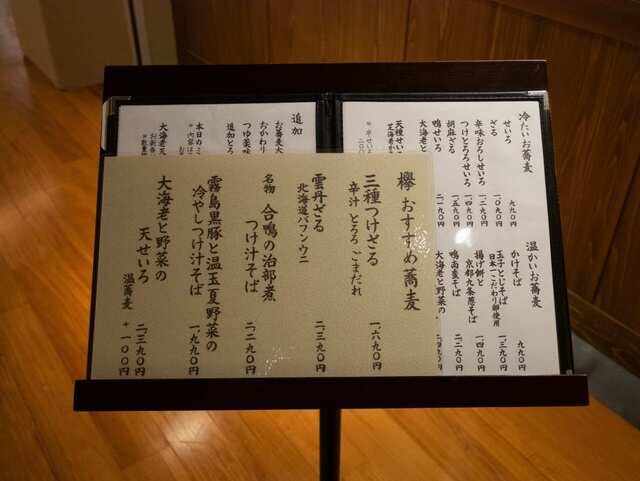 冷たいお蕎麦
せいろ 九九〇円
ざる
辛味おろしせいろ
つけとろろせいろ
胡麻ざる
鴨せいろ
大海老と
天種せいろ
温かいお蕎麦
かけそば 九九〇円
玉子とじそば 一、三九〇円
日本一こだわり卵使用
揚げ餅と
京都九条葱そば 一、四九〇円
鴨南蛮そば 二、二九〇円
大海老と野菜の
欅 おすすめ蕎麦
三種つけざる
辛汁 とろろ ごまだれ
一、六九〇円
雲丹ざる
北海道バフンウニ
二、三九〇円
名物 合鴨の治部煮
つけ汁そば
二、二九〇円
霧島黒豚と温玉夏野菜の
冷やしつけ汁そば
一、九九〇円
大海老と野菜の
天せいろ
二、三九〇円
温蕎麦 +一〇〇円
追加
お蕎麦大
おかわり
つゆ薬味
追加とろ
本日の
※内容は
大海老天